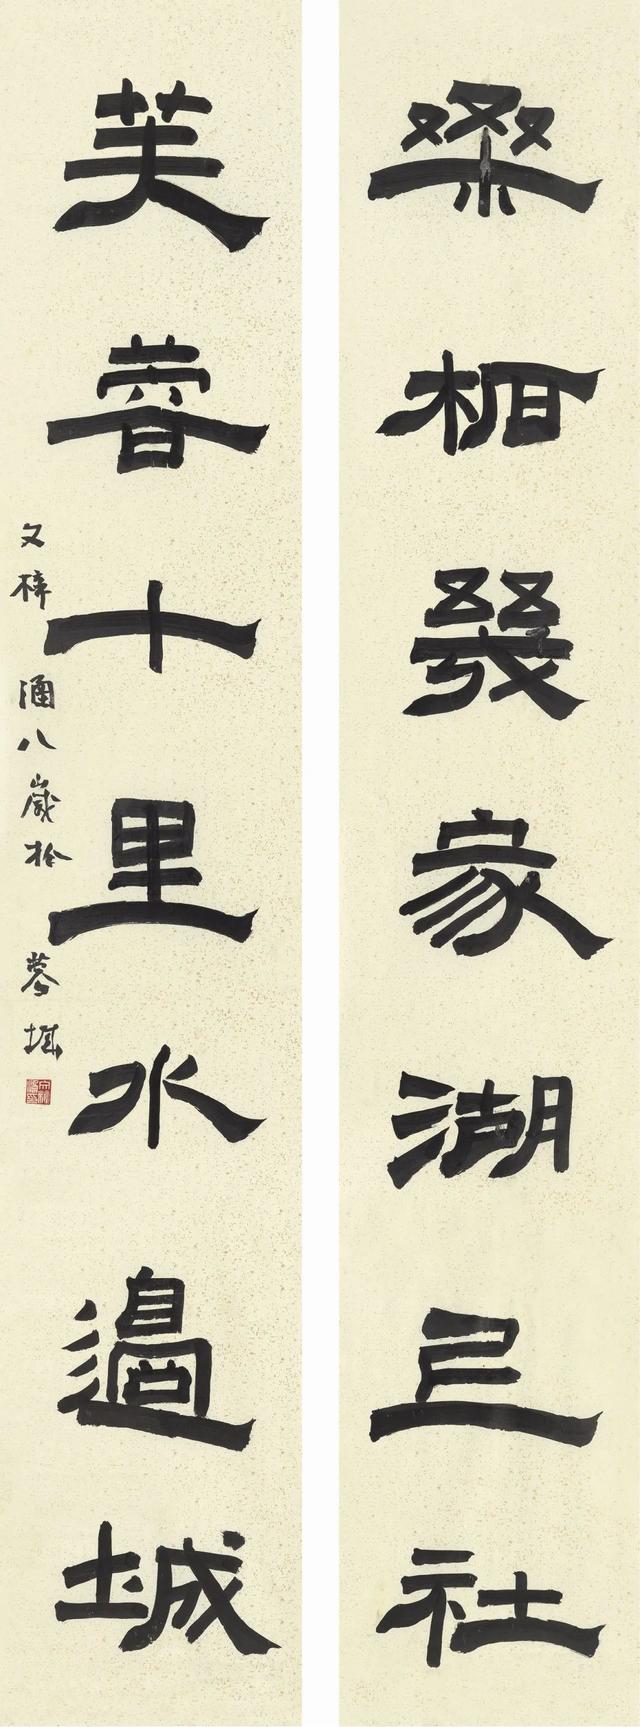 桑柘幾家湖上社
芙蓉十里水邊城
文梓涵八歲於蓉城